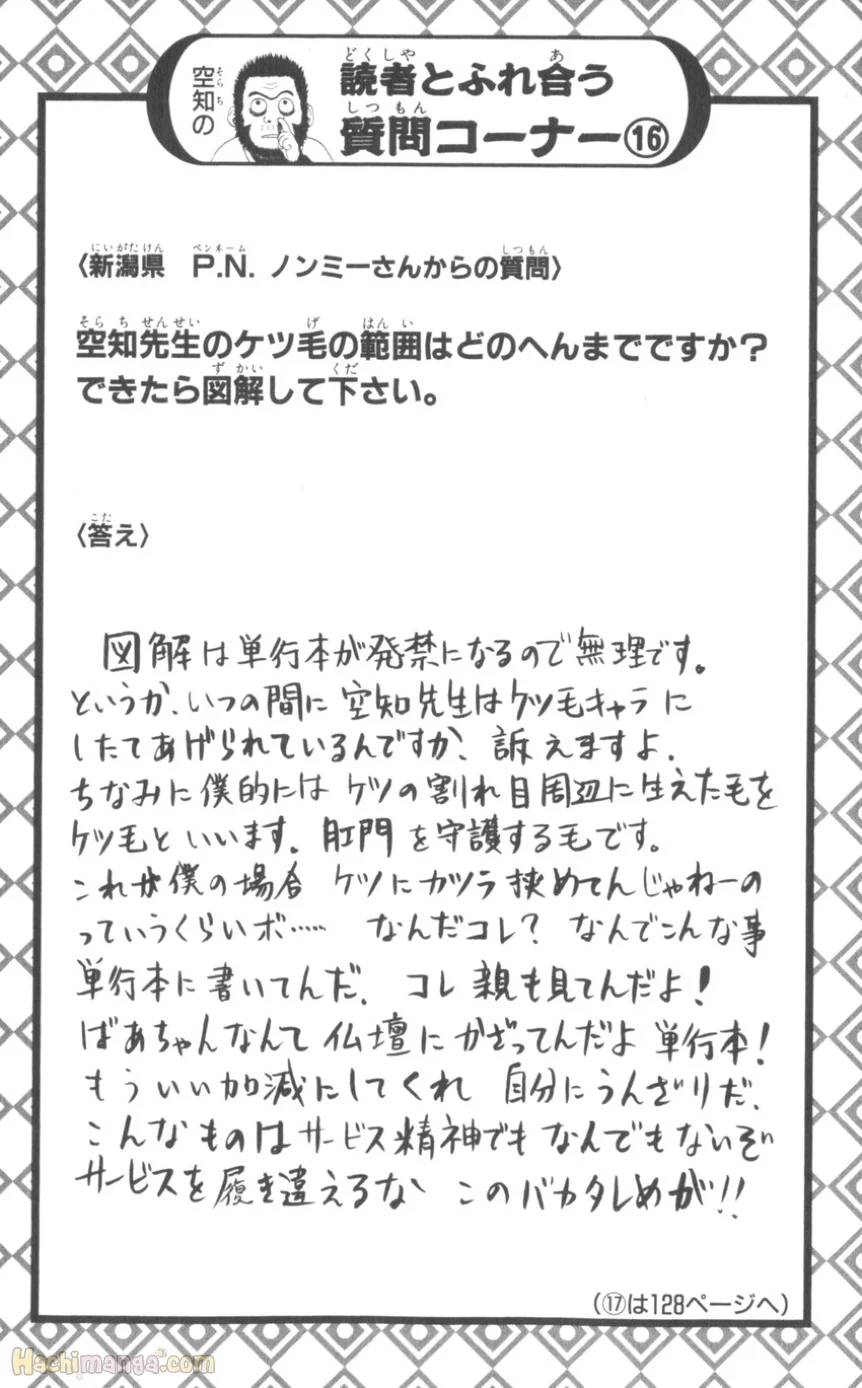 空知の
読者とふれ合う
質問コーナー⑯
〈新潟県　P.N. ノンミーさんからの質問〉
空知先生のケツ毛の範囲はどのへんまでですか?
できたら図解して下さい。
〈答え〉
図解は単行本が発禁になるので無理です。
というか、いつの間に空知先生はケツ毛キャラに
したてあげられているんですか、訴えますよ。
ちなみに僕的にはケツの割れ目周辺に生えた毛を
ケツ毛といいます。肛門を守護する毛です。
これが僕の場合 ケツにカツラ挟めてんじゃねーの
っていうくらいボ…… なんだコレ? なんでこんな事
単行本に書いてんだ、コレ親も見てんだよ!
ばあちゃんなんて仏壇にかざってんだよ 単行本!
もういい加減にしてくれ 自分にうんざりだ、
こんなものはサービス精神でもなんでもないぞ
サービスを履き違えるな このバカタレめが!!
(⑰は128ページへ)
Hachimanga.com